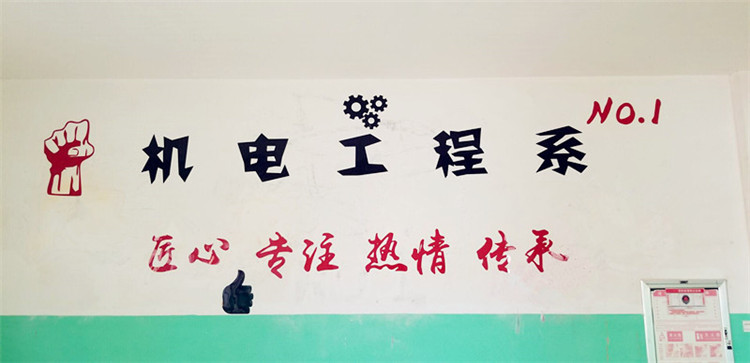 机电工程系
NO.1
匠心 专注 热情 传承